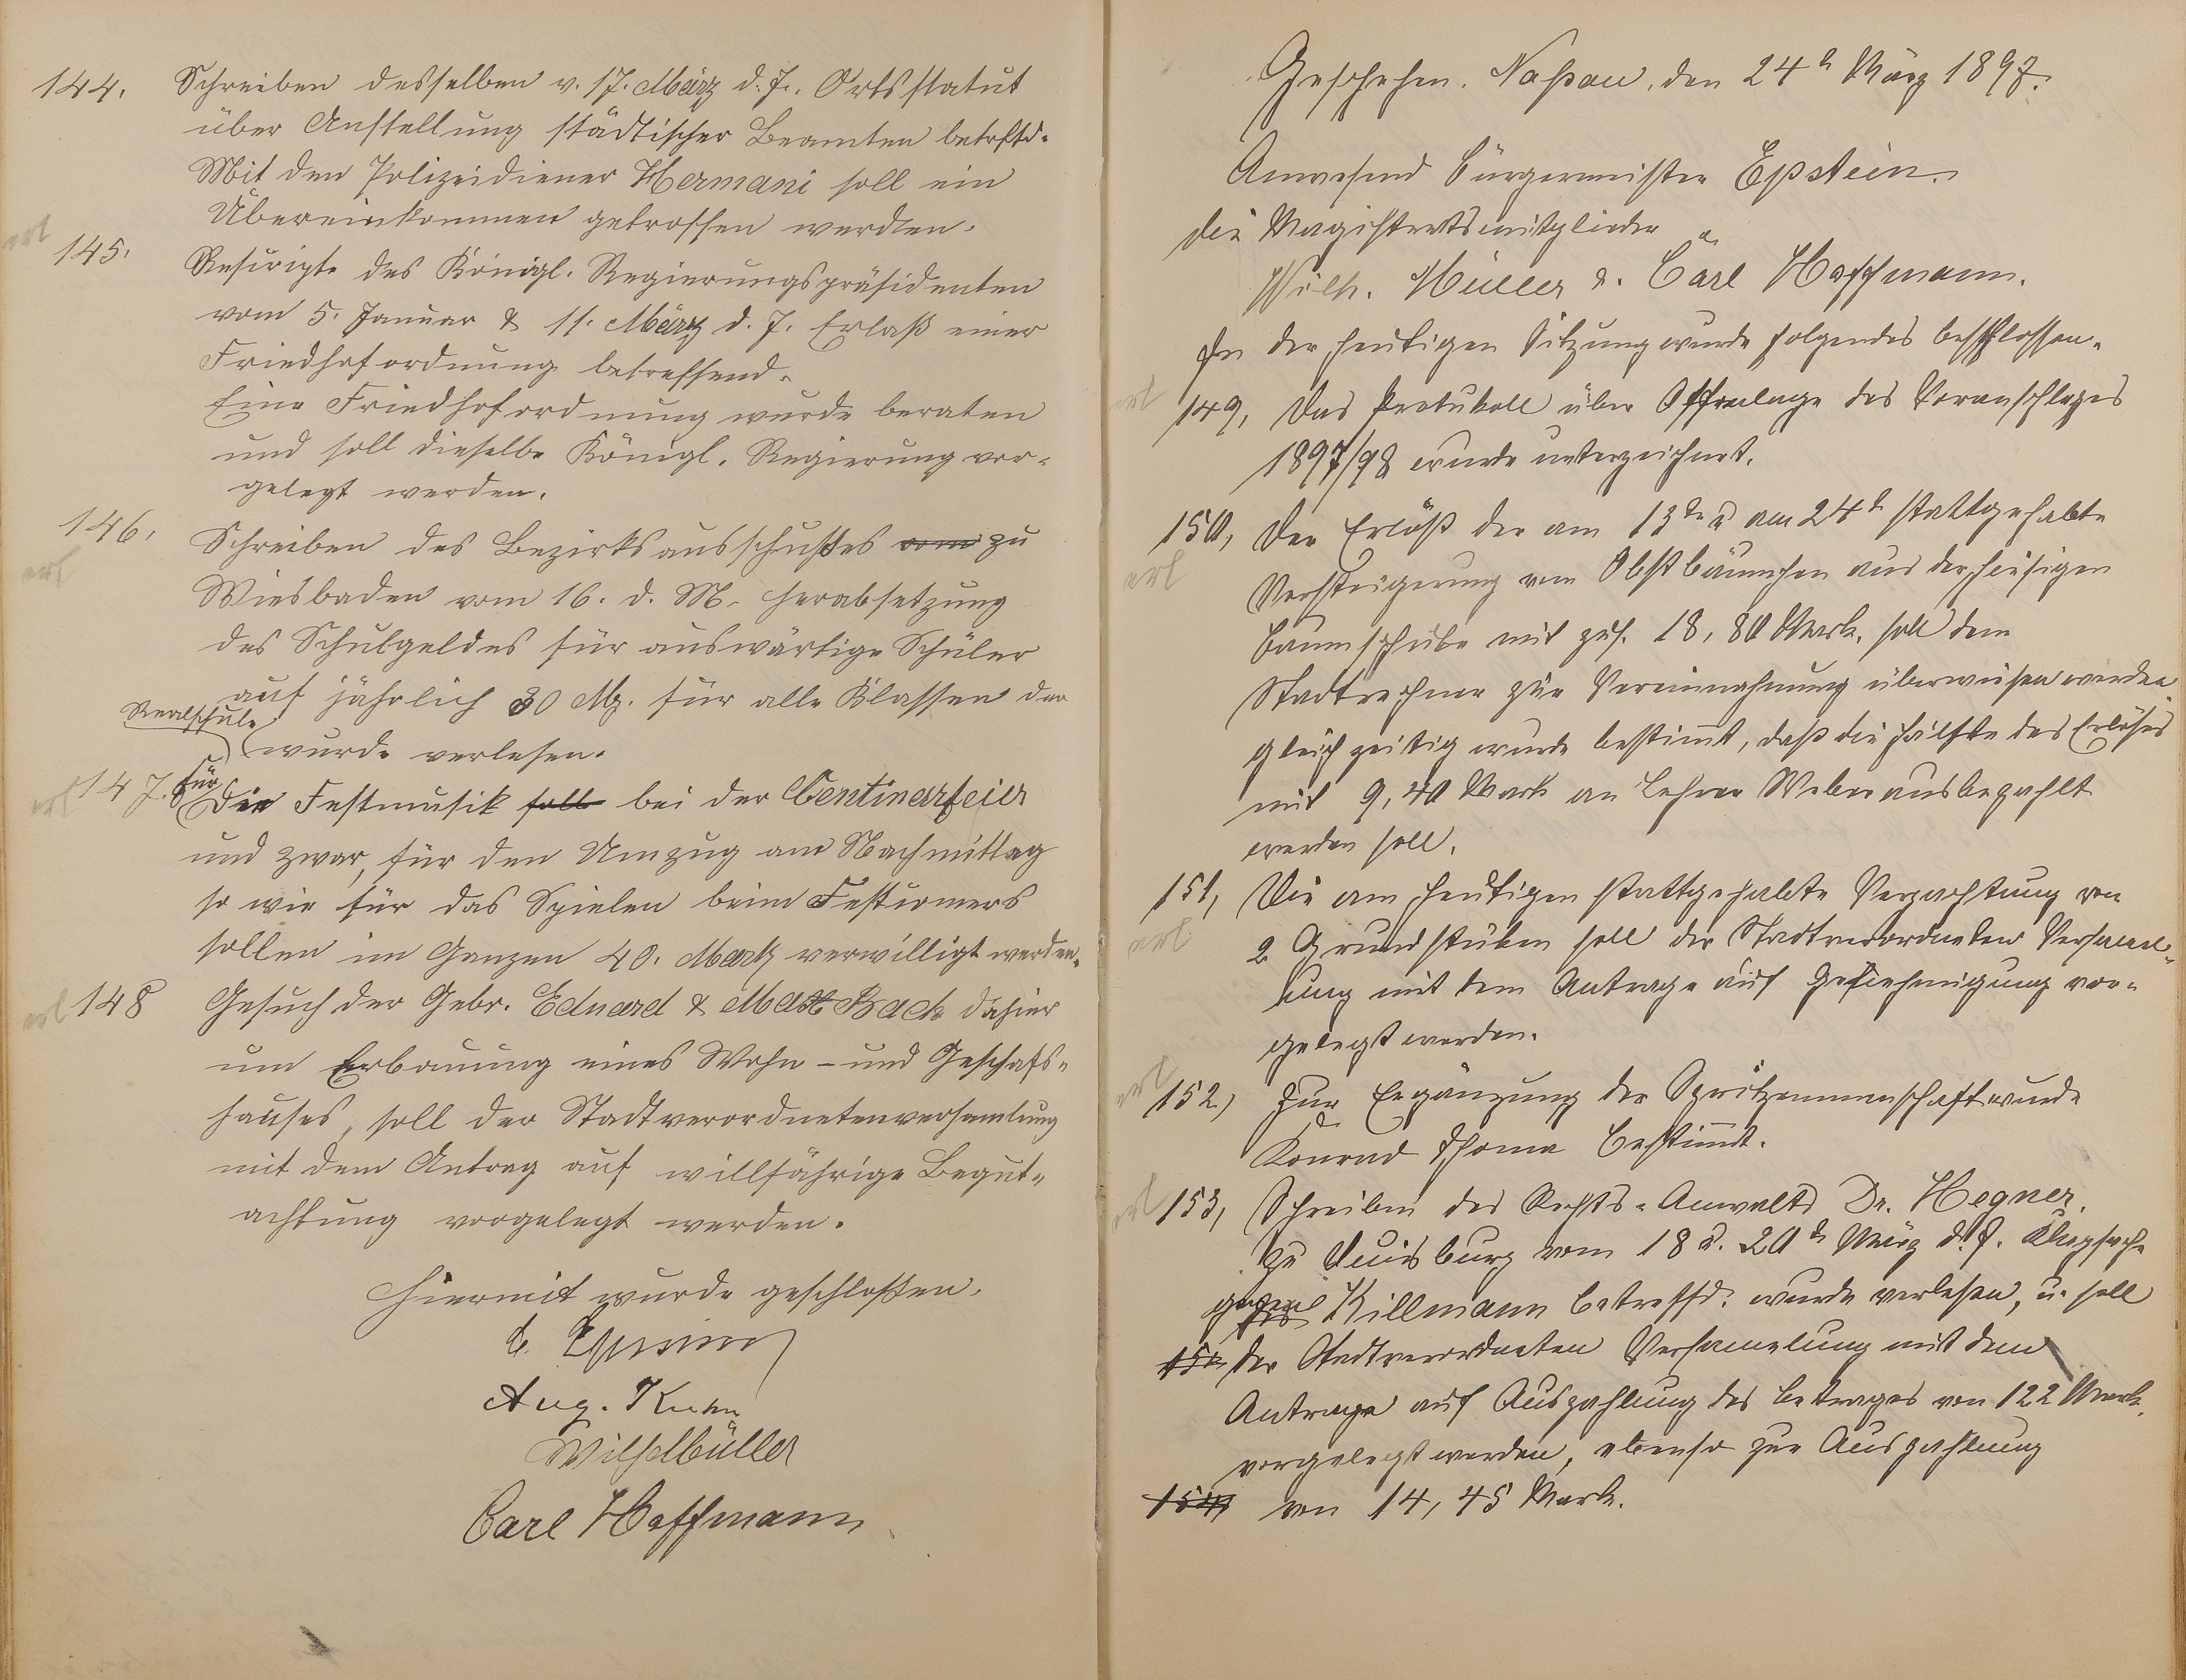 144. Schreiben desselben v. 17. März d. J. Ortsstatut
über Anstellung städtischer Beamten betrftd.
Mit dem Polizeidiener Hermani soll ein
Übereinkommen getroffen werden.
erl
145. Rescripte des Königl. Regierungspräsidenten
vom 5. Januar & 11. März d. J. Erlaß einer
Friedhofordnung betreffend.
Eine Friedhofordnung wurde beraten
und soll dieselbe Königl. Regierung vor-
gelegt werden.
146. Schreiben des Bezirksausschußes vom zu
erl
Wiesbaden vom 16. d. M. Herabsetzung
des Schulgeldes für auswärtige Schüler
auf jährlich 30 M. für alle Klassen der
Realschule
wurde verlesen.
erl 147. für Die Festmusik soll bei der Centinarfeier
und zwar, für den Umzug am Nachmittag
so wie für das Spielen beim Festcomers
sollen im Ganzen 40. Mark verwilligt werden.
erl 148 Gesuch der Gebr. Eduard & Max Bach dahier
um Erbauung eines Wohn- und Geschafs-
hauses, soll der Stadtverordnetenversamlung
mit dem Antrag auf willfährige Begut-
achtung vorgelegt werden.
Hiermit wurde geschloßen.
Aug. Kuhn
Wilh Müller
Carl Hoffmann
Geschehen. Naßau, den 24 März 1897.
Anwesend Bürgermeister Epstein.
die Magistratsmitglieder
Wilh. Müller u. Carl Hoffmann.
In der heutigen Sitzung wurde folgendes beschlossen.
erl
149, Das Protukoll über Offenlage des Voranschlages
1897/98 wurde unterzeichnet.
150, Der Erlöß der am 13ten u am 24 stattgehabte
erl
Versteigerung von Obstbäumchen aus der hiesigen
Baumschule mit zus. 18,80 Mark. soll dem
Stadtrechner zur Vereinnahmung überwiesen werden
gleichzeitig wurde bestimt, daß die Hälfte des Erlöses
mit 9,40 Mark an Lehrer Weber ausbezahlt
werden soll.
151, Die am heutigen stattgehabte Verpachtung von
erl
2 Grundstüken soll der Stadtverordneten Versamm-
lung mit dem Antrage auf Genehmigung vor-
gelegt werden.
erl
152, Zur Ergänzung der Spritzenmanschaft wurde
Konrad Thoma bestimt.
erl
153, Schreiben des Rechts-Anwalts Dr. Hegner.
zu Duisburg vom 18 u. 20 März d. J. Klagsache
gegen Killmann betreffd. wurde verlesen, u. soll
der Stadtverordneten Versamelung mit dem
Antrage auf Auszahlung des Betrages von 122 Mark.
vorgelegt werden, ebenso zur Auszahlung
154, von 14,45 Mark.